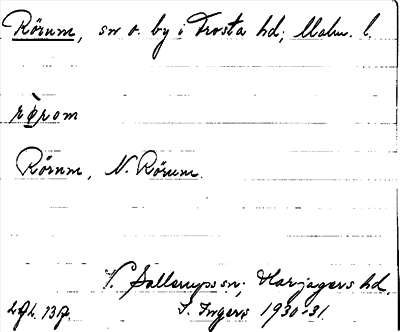 Rörum, sn o. by i Frosta hd; Malm. l.
rø̀rom
Rörum, N. Rörum.
V. Sallerups sn; Harjagers hd.
I. Ingers 1930-31.